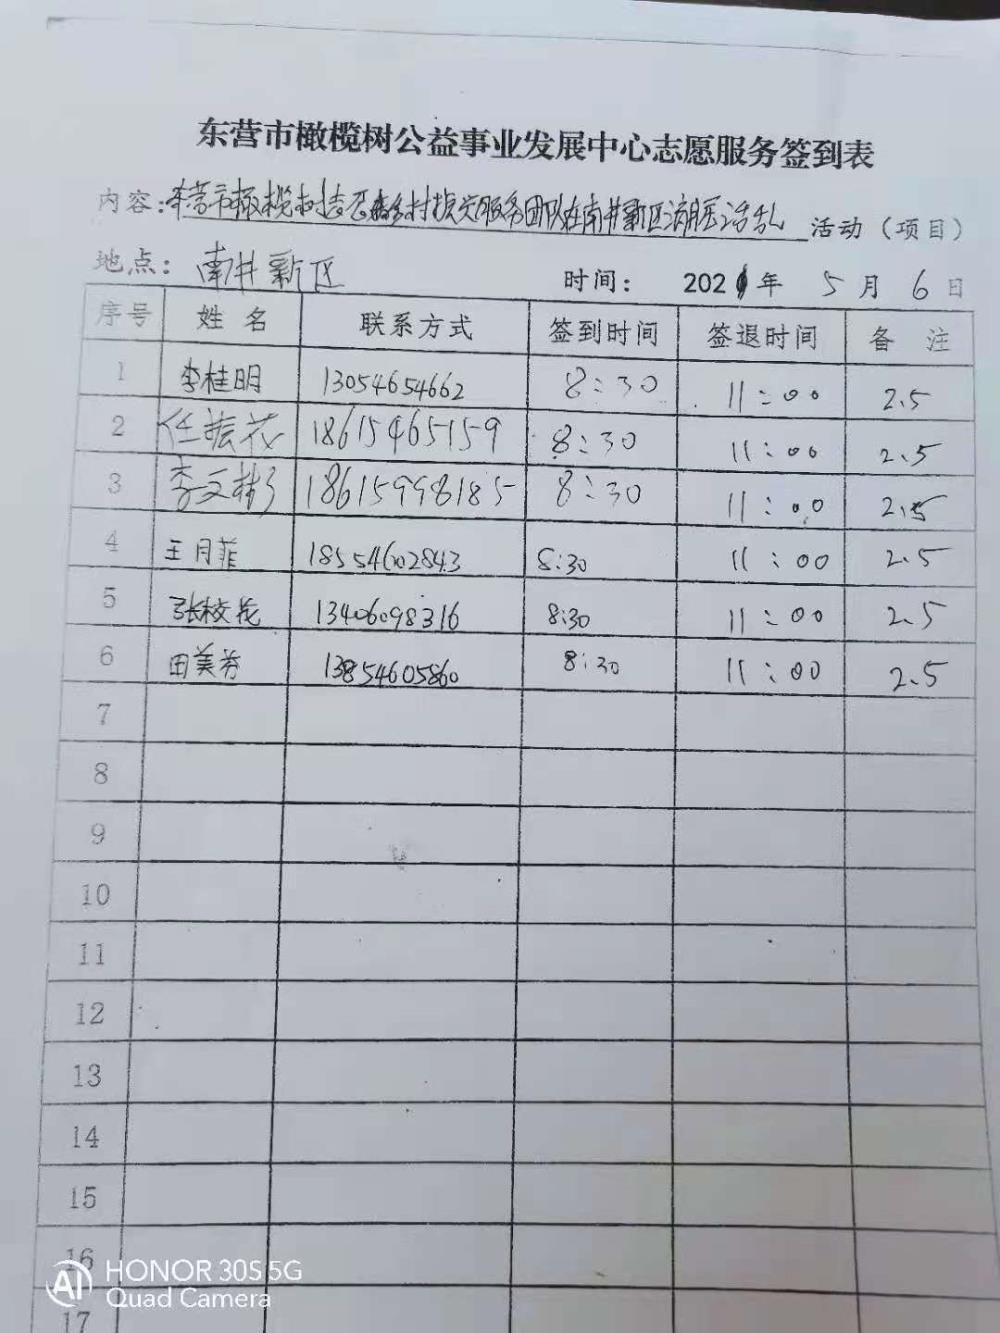 东营市橄榄树公益事业发展中心志愿服务签到表
内容：东营市橄榄树志愿乡村振兴服务团队在南井新区 活动（项目）
地点：南井新区 时间：2021年5月6日
序号 姓名 联系方式 签到时间 签退时间 备注
1 李桂明 13054654662 8:30 11:00 2.5
2 任振花 18615465159 8:30 11:00 2.5
3 李文彬 18615998185 8:30 11:00 2.5
4 王月菲 18554602843 8:30 11:00 2.5
5 张校花 13406098316 8:30 11:00 2.5
6 田美芬 13854605860 8:30 11:00 2.5
7
8
9
10
11
12
13
14
15
16
17
HONOR 30S 5G
Quad Camera